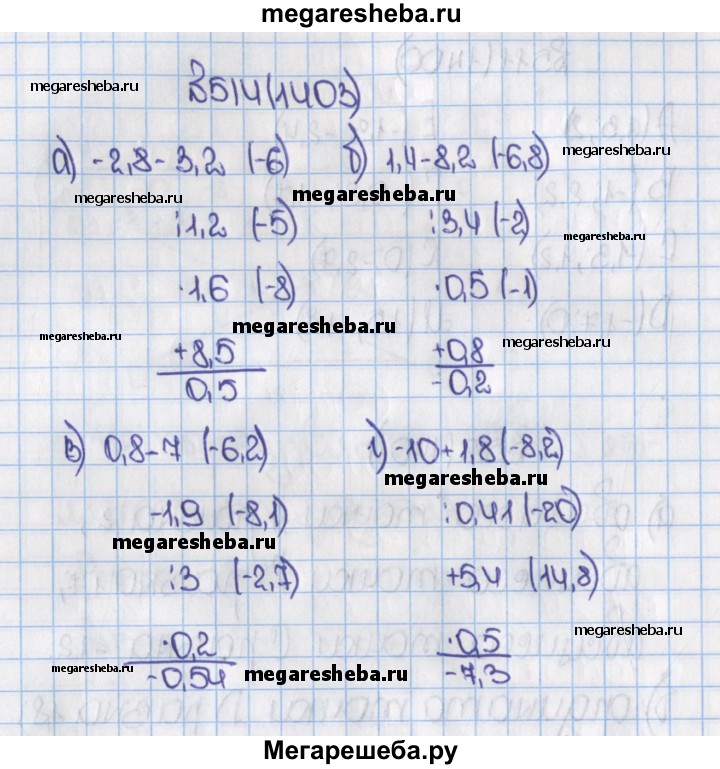 megaresheba.ru
В514(1403)
megaresheba.ru
а) -2,8-3,2 (-6) б) 1,4-8,2 (-6,8)
megaresheba.ru
megaresheba.ru
megaresheba.ru
:1,2 (-5) :3,4 (-2)
megaresheba.ru
·1,6 (-8) ·0,5 (-1)
megaresheba.ru
megaresheba.ru
megaresheba.ru
+8,5 +0,8
0,5 -0,2
в) 0,8-7 (-6,2) г) -10+1,8 (-8,2)
megaresheba.ru
-1,9 (-8,1) :0,41 (-20)
megaresheba.ru
:3 (-2,7) +5,4 (14,8)
megaresheba.ru
·0,2 ·0,5
-0,54 -7,3
megaresheba.ru
megaresheba.ru
Мегарешеба.ру